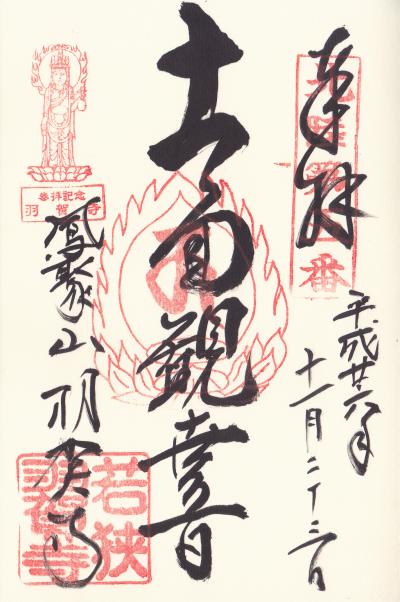 奉拝
平成廿六年
十一月二十三日
十一面観音
鳳聚山羽賀寺
参拝記念
羽賀寺
若狭
羽賀寺